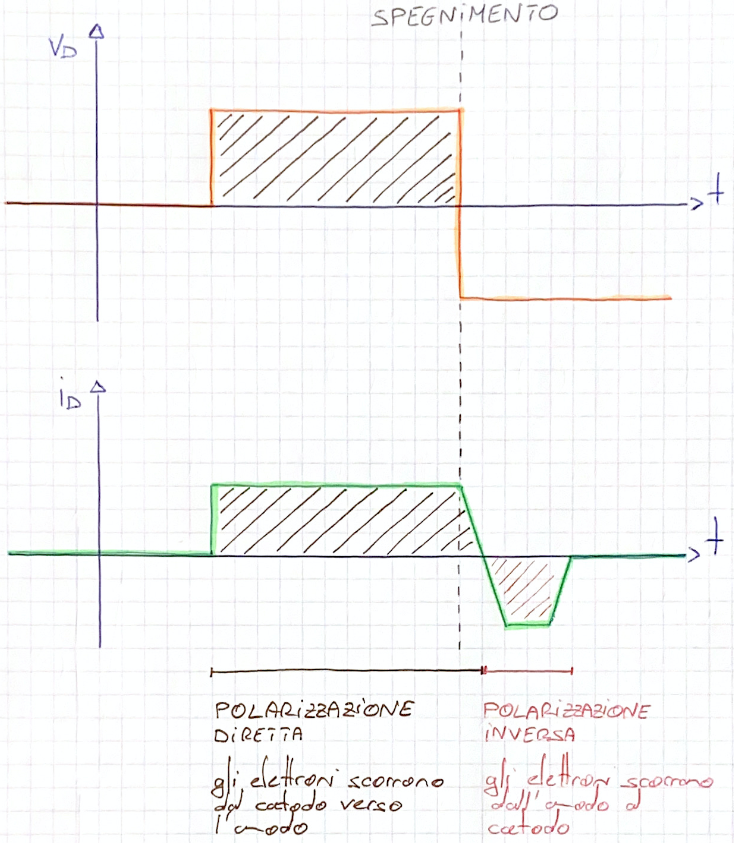 SPEGNIMENTO
VD
t
iD
t
POLARIZZAZIONE
DIRETTA
gli elettroni scorrono
dal catodo verso
l'anodo
POLARIZZAZIONE
INVERSA
gli elettroni scorrono
dall'anodo al
catodo